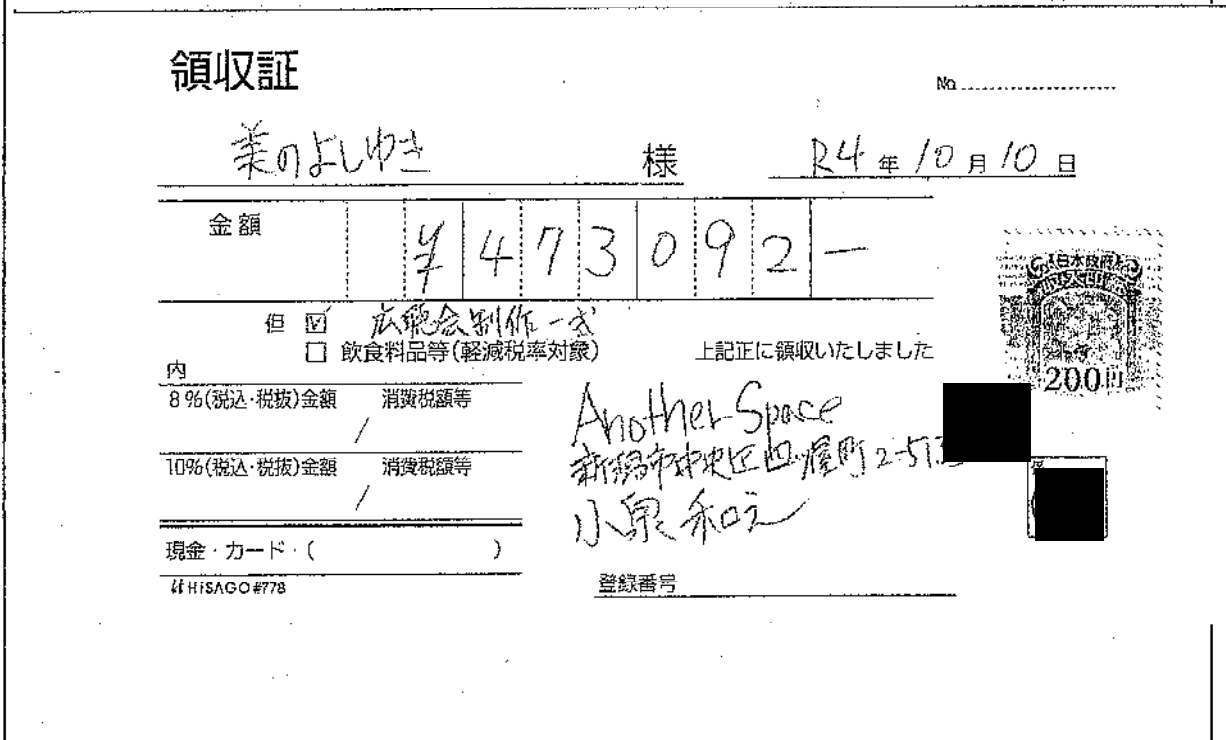 領収証
No.
美のよしゆき 様
R4年10月10日
金額 ¥473092-
但 ☑ 広聴会制作一式
□ 飲食料品等(軽減税率対象)
上記正に領収いたしました
内
8%(税込・税抜)金額 消費税額等
/
10%(税込・税抜)金額 消費税額等
/
現金・カード・( )
HiSAGO #778
Another Space
新潟市中央区四ツ屋町2-513
小泉
登録番号
日本政府
200円